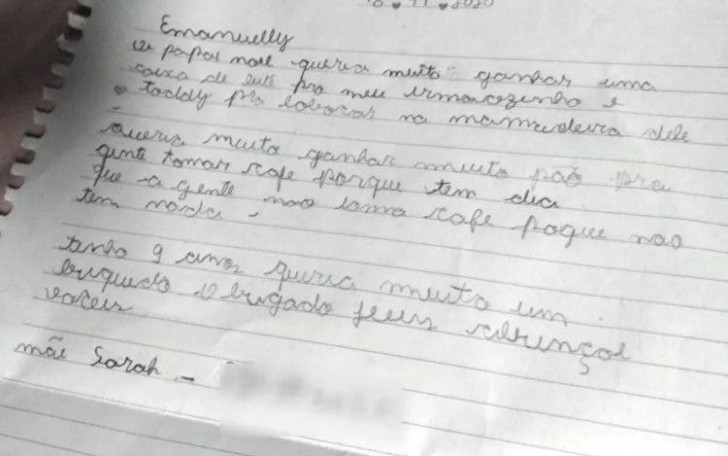 11 2020
Emanuelly
oi papai noel queria muito ganhar uma
caixa de leite pro meu irmaozinho e
toddy pra colocar na mamadeira dele
queria muito ganhar muito pão pra
gente tomar cafe porque tem dia
que a gente nao toma cafe poque nao
tem nada.
tenho 9 anos queria muito um
briquedo obrigado feliz
mãe Sarah -